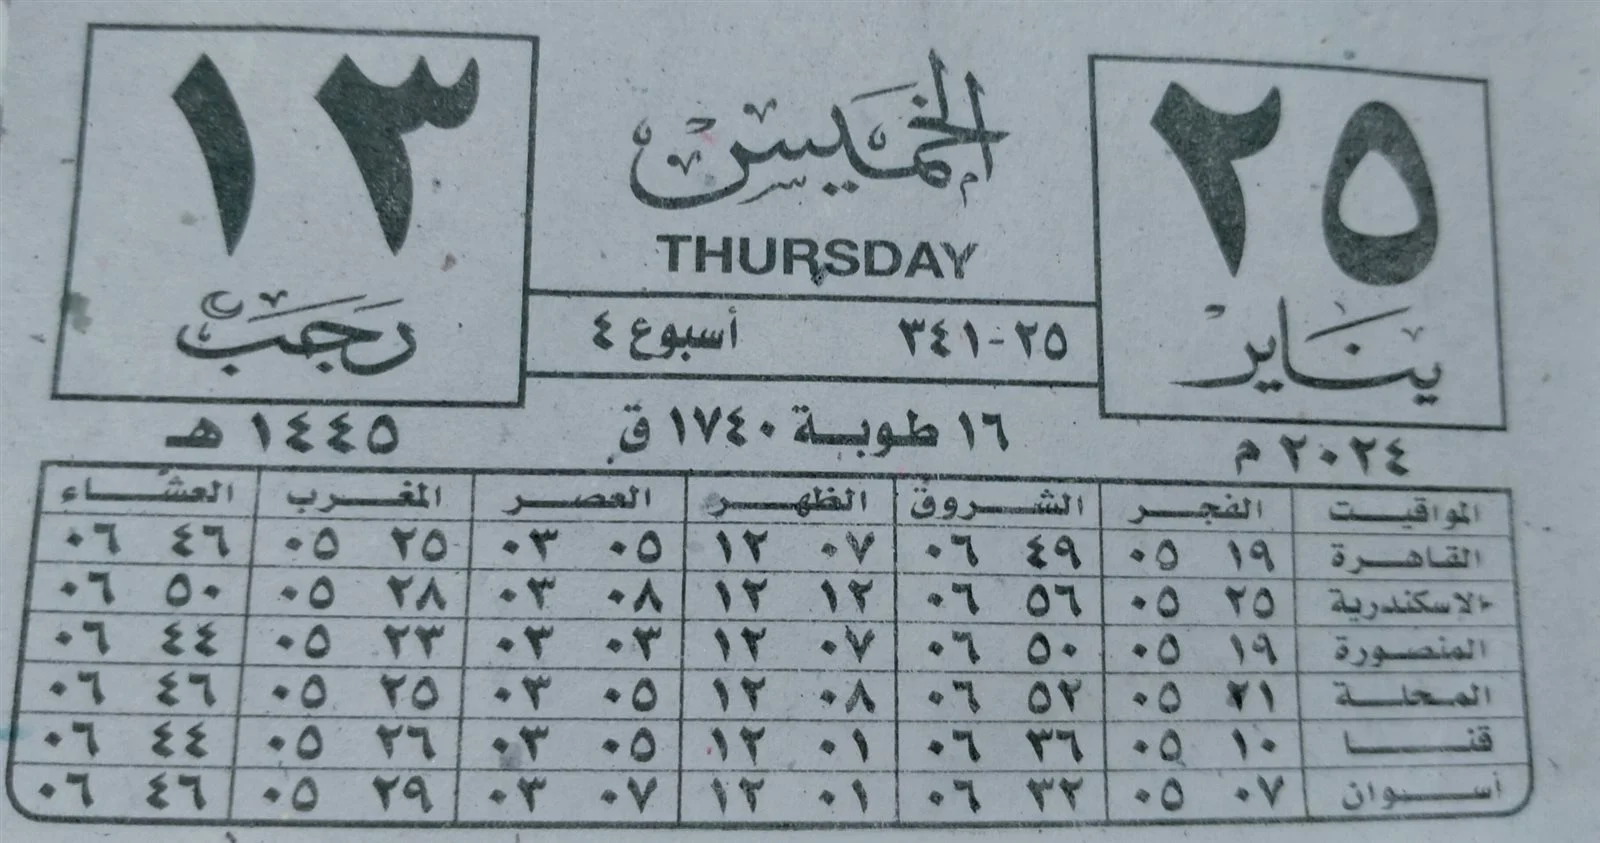 ٢٥
يناير
٢٠٢٤ م
الخميس
THURSDAY
٢٥-٣٤١ أسبوع ٤
١٦ طوبة ١٧٤٠ ق
١٣
رجب
١٤٤٥ هـ
المواقيت الفجر الشروق الظهر العصر المغرب العشاء
القاهرة ١٩ ٠٥ ٤٩ ٠٦ ٠٧ ١٢ ٠٥ ٠٣ ٢٥ ٠٥ ٤٦ ٠٦
الاسكندرية ٢٥ ٠٥ ٥٦ ٠٦ ١٢ ١٢ ٠٨ ٠٣ ٢٨ ٠٥ ٥٠ ٠٦
المنصورة ١٩ ٠٥ ٥٠ ٠٦ ٠٧ ١٢ ٠٣ ٠٣ ٢٣ ٠٥ ٤٤ ٠٦
المحلة ٢١ ٠٥ ٥٢ ٠٦ ٠٨ ١٢ ٠٥ ٠٣ ٢٥ ٠٥ ٤٦ ٠٦
قنا ١٠ ٠٥ ٣٦ ٠٦ ٠١ ١٢ ٠٥ ٠٣ ٢٦ ٠٥ ٤٤ ٠٦
أسوان ٠٧ ٠٥ ٣٢ ٠٦ ٠١ ١٢ ٠٧ ٠٣ ٢٩ ٠٥ ٤٦ ٠٦